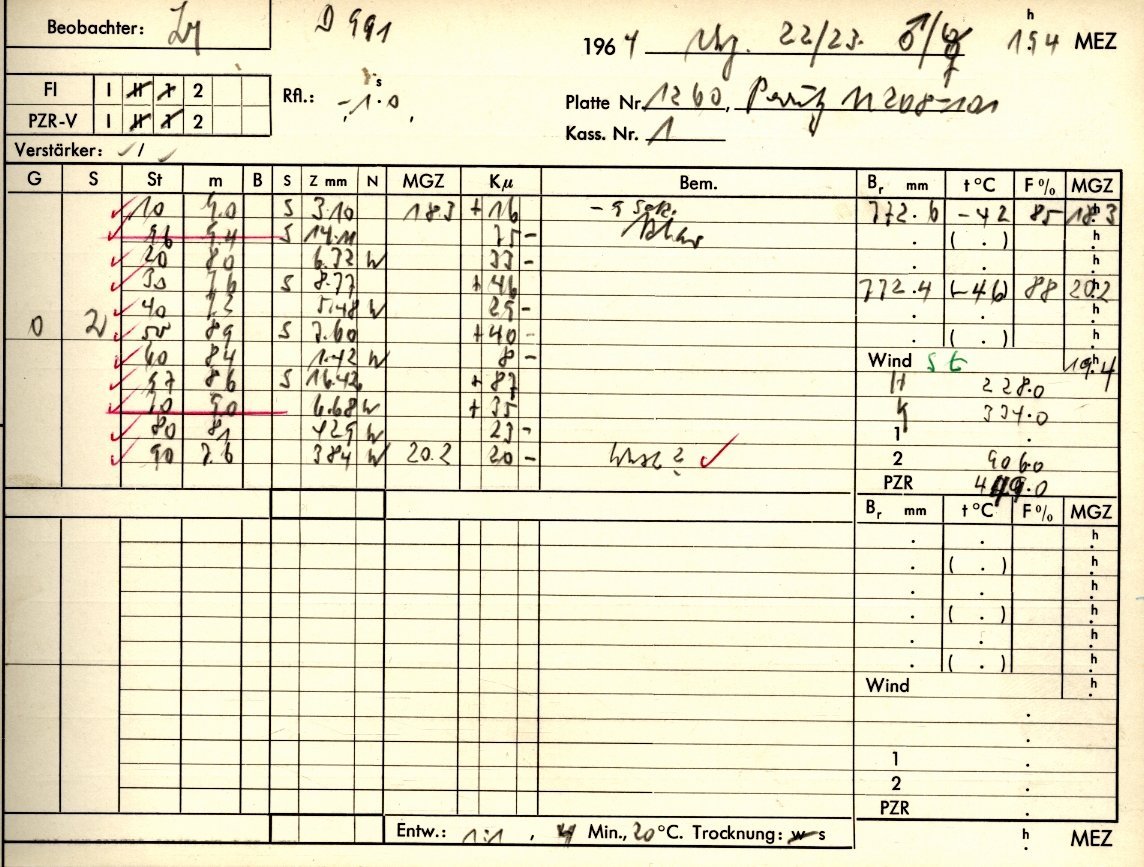 Beobachter:
D 991
1964 22/23. ♂/☿ 19.4 h MEZ
FI I II 1 2
PZR-V I II 1 2
Rfl.: -1.0 s
Platte Nr. 1260,
Kass. Nr. 1
Verstärker: /
G S St m B S Z mm N MGZ Kμ Bem.
10 9.0 S 3.10 18.3 +16 - 9 Sek.
96 9.4 S 14.11 75 -
20 8.0 6.32 W 33 -
30 7.6 S 8.77 +46
40 7.2 5.48 W 29 -
0 2 50 8.9 S 7.60 +40 -
60 8.4 1.42 W 8 -
97 8.6 S 16.42 +87
70 9.0 6.68 W +35
80 8.1 4.29 W 23 -
90 7.6 3.84 W 20.2 20 -
Br mm t °C F % MGZ
772.6 -4.2 85 18.3 h
. ( . ) h
. . h
772.4 (-4.6) 88 20.2 h
. . h
. ( . ) h
Wind S t 19.4 h
H 228.0
K 334.0
1 .
2 906.0
PZR 449.0
Br mm t °C F % MGZ
. . h
. ( . ) h
. . h
. ( . ) h
. . h
. ( . ) h
Wind h
.
.
1 .
2 .
PZR .
Entw.: 1:1, 4 Min., 20 °C. Trocknung: w s
h MEZ